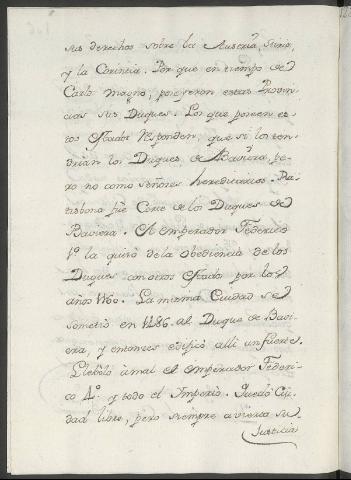 sus derechos sobre la Austria, Stiria,
y la Corintia. Por que en tiempo de
Carlo magno, poseyeron estas Provin-
cias sus Duques. Los que poseen es-
tos estados responden, que si los ten-
drian los Duques de Baviera, pe-
ro no como señores hereditarios. Ra-
tisbona fué Corte de los Duques de
Baviera. El emperador Federico
1º la quitó de la Obediencia de los
Duques con otros estados por los
años 1160. La misma Ciudad se
sometió en 1486. al Duque de Bavi-
era, y entonces edificó alli un fuerte.
Llebólo à mal el emperador Federi-
co 4º y todo el Imperio. Quedó Ciu-
dad libre, pero siempre abierta su
Justicia